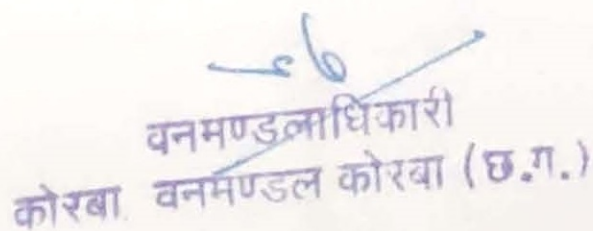 वनमण्डलाधिकारी
कोरबा वनमण्डल कोरबा (छ.ग.)